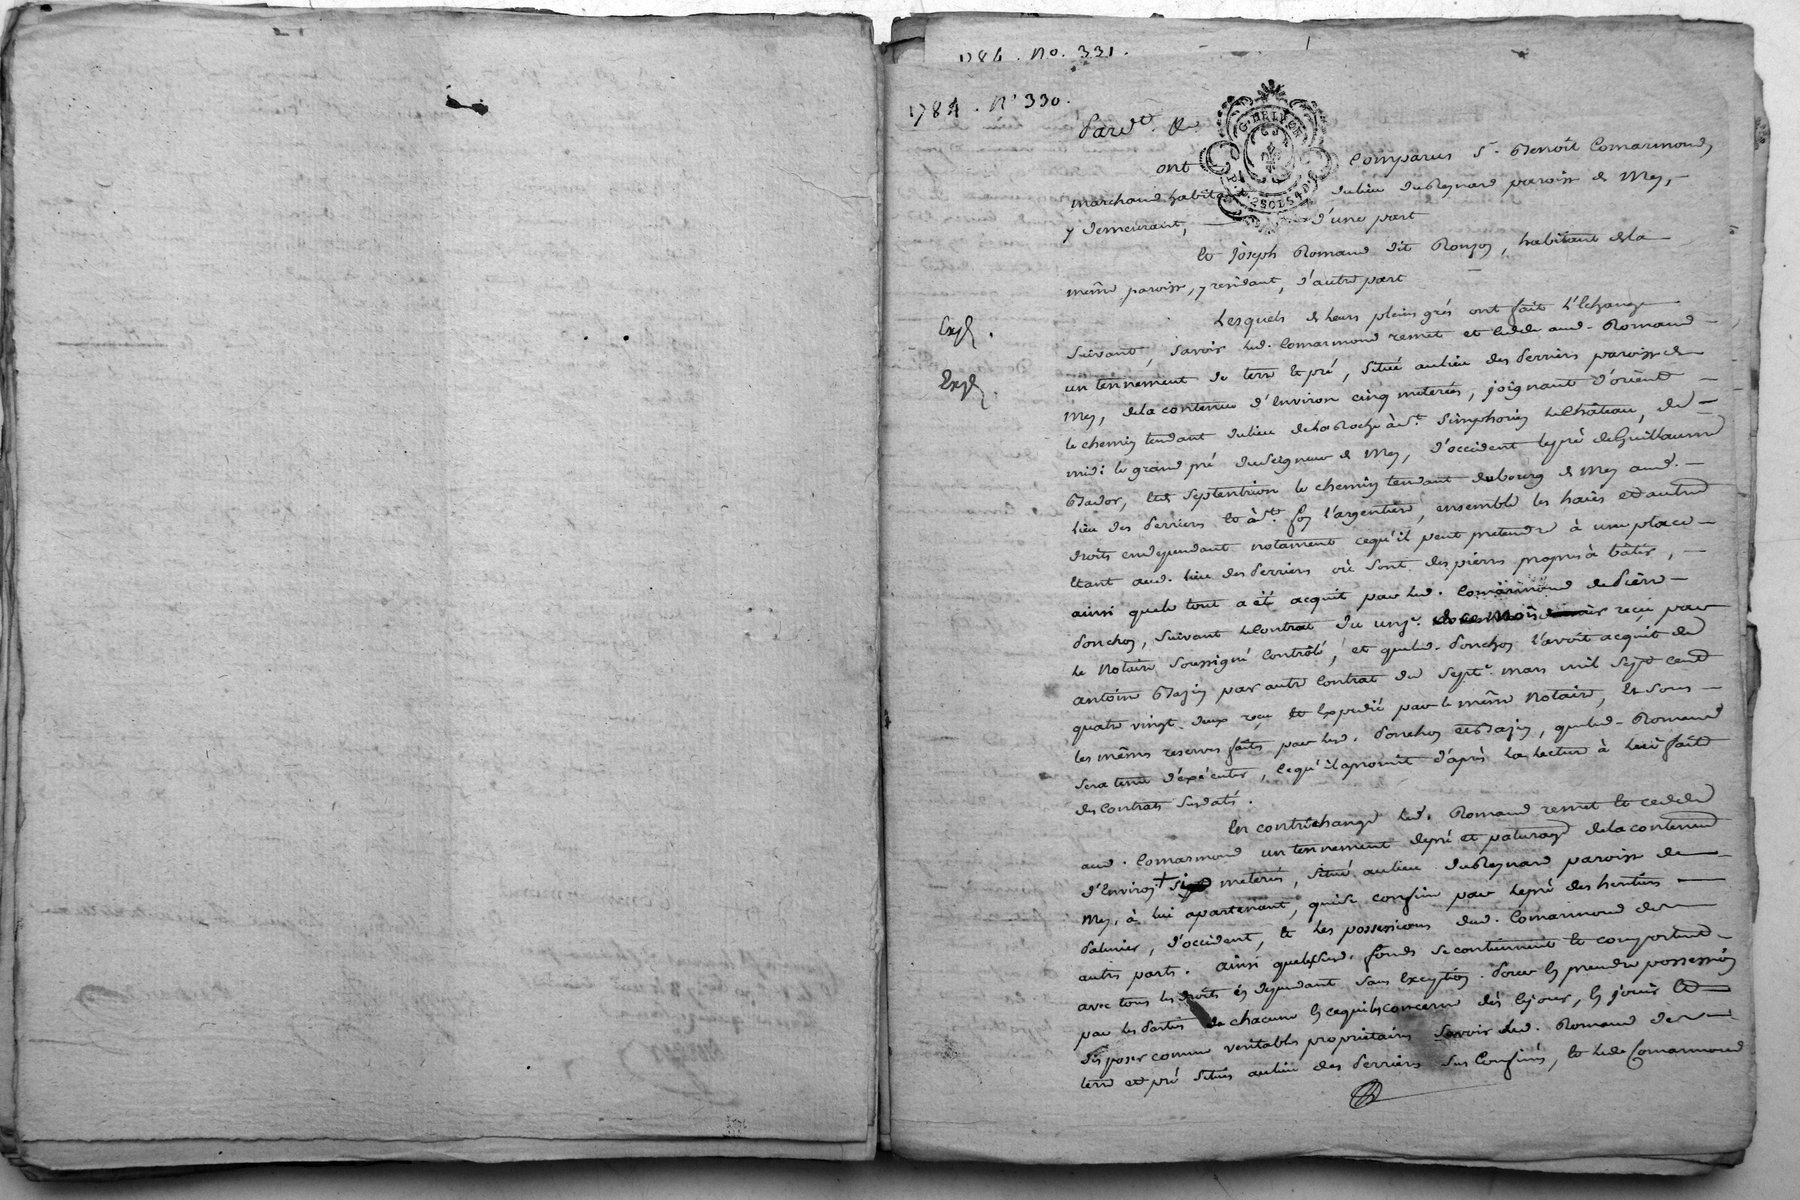 1784. No. 331.
1784. N° 330.
Pardt. &.
G. DE LYON
P. P. 2 SOLS 4 D.
ont comparus Sr. Benoit Comarmond,
marchand habitant du lieu du Reynard paroisse de Mey,
y demeurant, d'une part
Et Joseph Romand dit Ronzon, habitant de la
même paroisse, y residant, d'autre part
Lesquels de leurs pleins grés ont fait l'Echange
Expé.
suivant, savoir led. Comarmond remet et cedde aud. Romand
un tennement de terre et pré, situé au lieu des Perriers paroisse de
Expé.
Mey, de la contenue d'Environ cinq meterées, joignant d'orient
le chemin tendant du lieu de la Roche à St. Simphorien le Château, de
midi le grand pré du Seigneur de Mey, d'occident le pré de Guillaume
Bador, et de septentrion le chemin tendant du bourg de Mey aud.
lieu des Perriers et à Ste. foy l'argentière, ensemble les haies et autres
droits en dependant notament ce qu'il peut pretendre à une place
Etant aud. lieu des Perriers où sont des pierres propres à bâtir,
ainsi que le tout a été acquit par led. Comarmond de Pierre
Ponchon, suivant le Contrat du unze. reçu par
le Notaire soussigné Controlé, et que led. Ponchon l'avoit acquit de
antoine Bazin par autre Contrat du Sept. mars mil sept cent
quatre vingt deux reçu et Expedié par le même Notaire, Et sous
les mêmes reserves faites par led. Ponchon et Bazin, que led. Romand
sera tenu d'exécuter, ce qu'il a promit d'après la lecture à lui faite
des Contrats susdatés.
En contréchange led. Romand remet et cedde
aud. Comarmond un tennement de pré et paturage de la contenue
d'Environ + six meterées, situé au lieu du Reynard paroisse de
Mey, à lui apartenant, qui se confine par le pré des heritiers
Palmier, d'occident, et les possessions dud. Comarmond des
autres parts. Ainsi que lesd. fonds se contiennent et comportent
avec tous les droits en dependant sans Exception. Pour en prendre possession
par les Parties de chacune en ce qui les concerne dès ce jour, en jouir et
disposer comme veritables proprietaires savoir led. Romand des
terre et pré situés au lieu des Perriers sus Confinés, et led. Comarmond